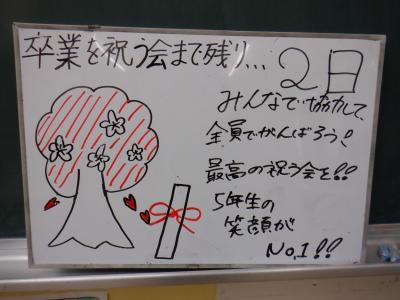 卒業を祝う会まで残り... 2日
みんなで協力して、
全員でがんばろう!
最高の祝う会を!!
5年生の
笑顔が
No,1!!